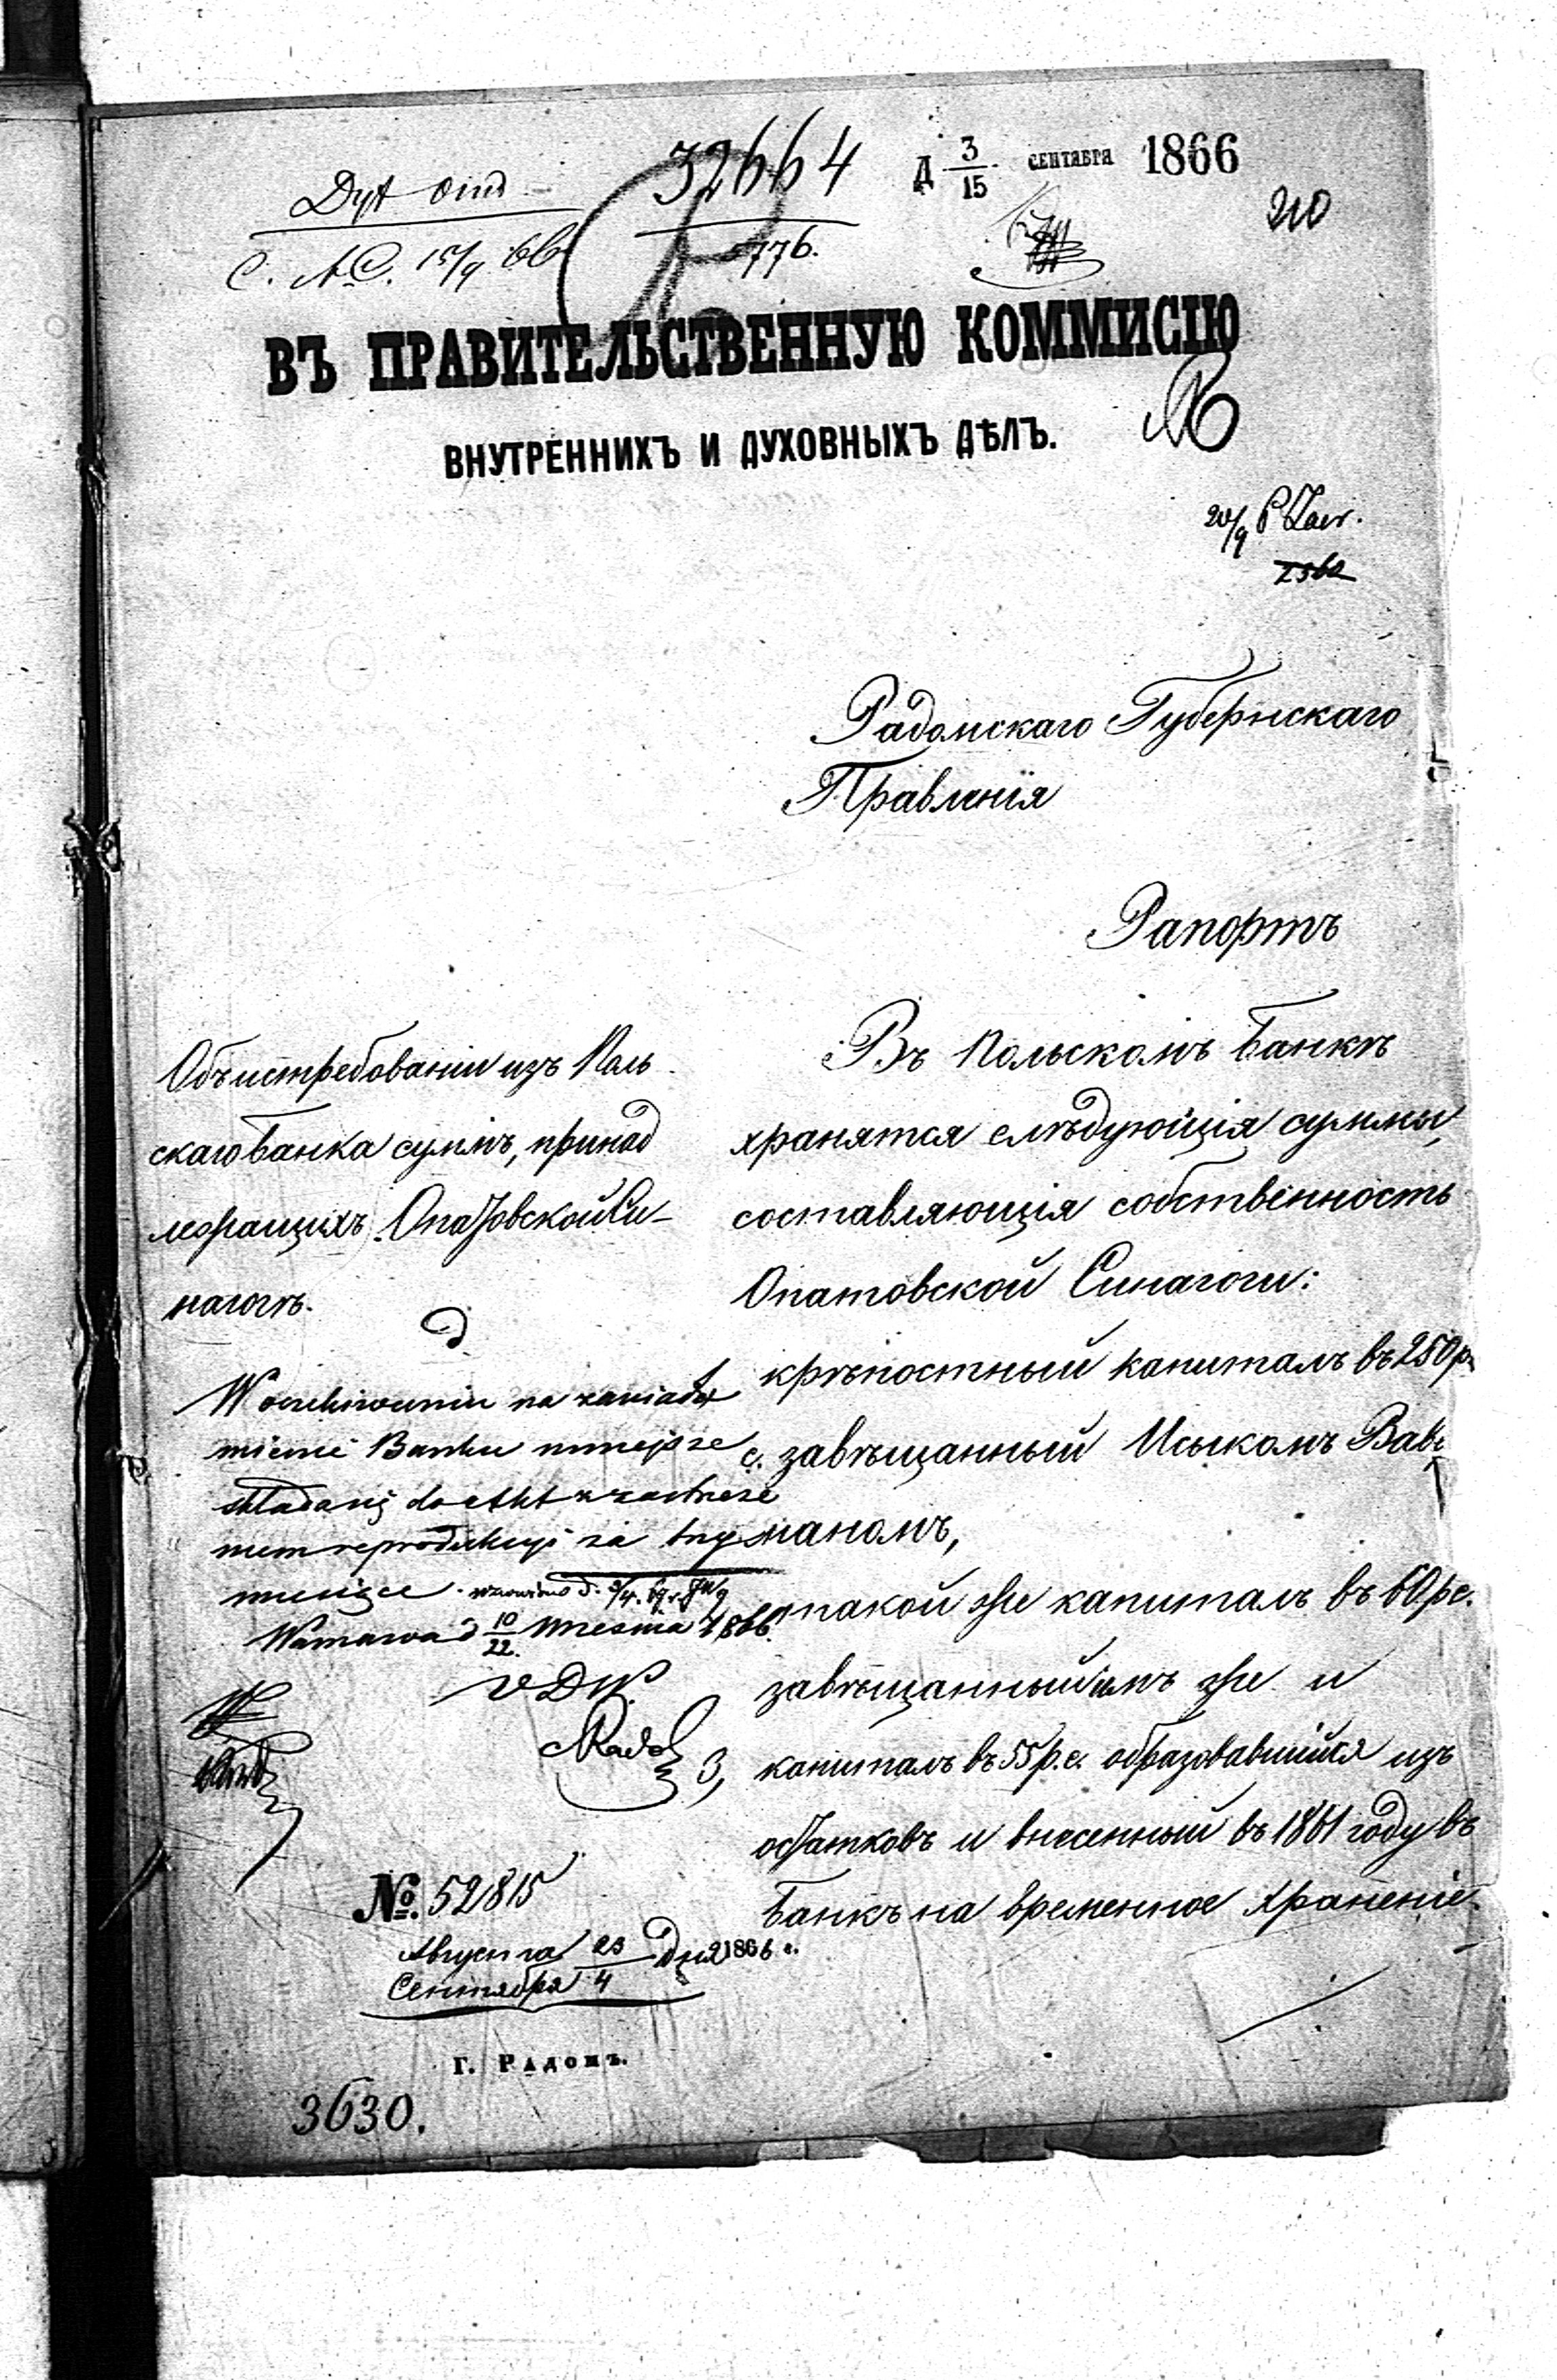 32664
776.
Д 3/15 СЕНТЯБРЯ 1866
210
15/9 66
ВЪ ПРАВИТЕЛЬСТВЕННУЮ КОММИСІЮ
ВНУТРЕННИХЪ И ДУХОВНЫХЪ ДѢЛЪ.
20/9
Радомскаго Губернскаго
Правленія
Рапортъ
Объ истребованіи изъ Поль
скаго банка суммъ, принад
лежащихъ Опатовской Си-
нагогѣ.
W oczekiwaniu na zawiado
mienie Banku niniejsze
do akt
nem reprodukcyi za trzy
miesiące.
Warszawa d 10/22. Września 1866.
VDW.
№ 52815
Августа 23
Сентября 4 дня 1866 г.
Г. РАДОМЪ.
3630.
Въ Польскомъ банкѣ
хранятся слѣдующія суммы,
составляющія собственность
Опатовской Синагоги:
крѣпостный капиталъ въ 250 р
с. завѣщанный Ицыкомъ
маномъ,
такой же капиталъ въ 60 р с.
завѣщанный имъ же и
3, капиталъ въ 55 р. с. образовавшійся изъ
остатковъ и внесенный въ 1861 году въ
банкъ на временное храненіе.